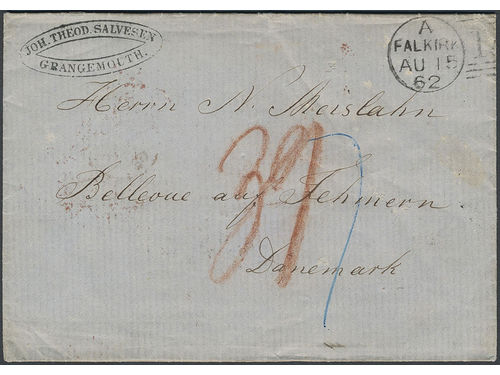 JOH. THEOD. SALVESEN
GRANGEMOUTH.
A
FALKIRK
AU 15
62
Herrn N. Meislahn
Bellevue auf Fehmern.
Dänemark